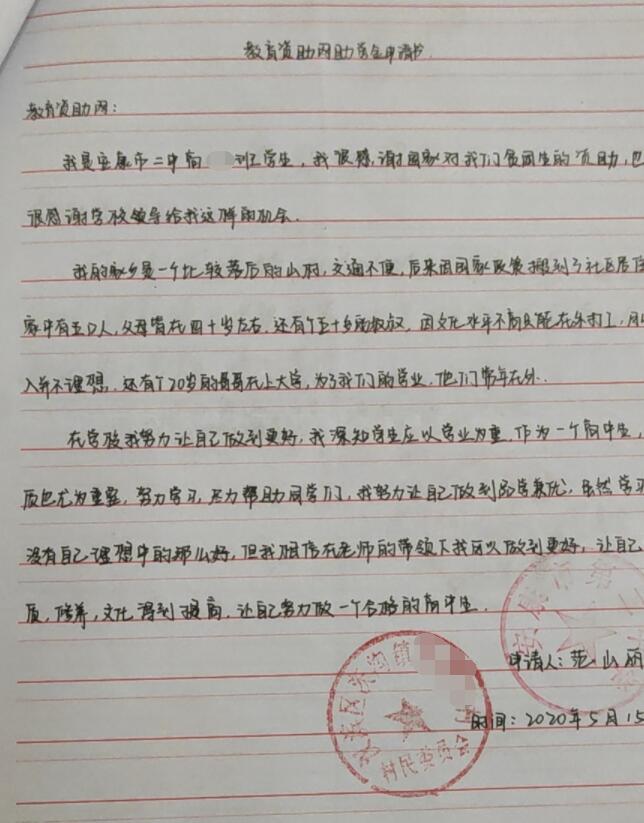 教育资助网助学金申请书
教育资助网：
我是安康市二中高 班学生，我很感谢国家对我们贫困生的资助，也
很感谢学校领导给我这样的机会．
我的家乡是一个比较落后的山村，交通不便，后来因国家政策搬到了社区居住
家中有五口人，父母皆在四十岁左右，还有个五十岁的叔叔，因文化水平不高只能在外打工，月收
入并不理想．还有个20岁的哥哥在上大学，为了我们的学业，他们常年在外．
在学校我努力让自己做到更好，我深知学生应以学业为重，作为一个高中生，
质也尤为重要，努力学习，尽力帮助同学们，我努力让自己做到品学兼优，虽然学习
没有自己理想中的那么好，但我相信在老师的带领下我可以做到更好，让自己
质，修养，文化得到提高，让自己努力做一个合格的高中生．
安康市第二
申请人：范山丽
区 沟镇 村
村民委员会
时间：2020年5月15